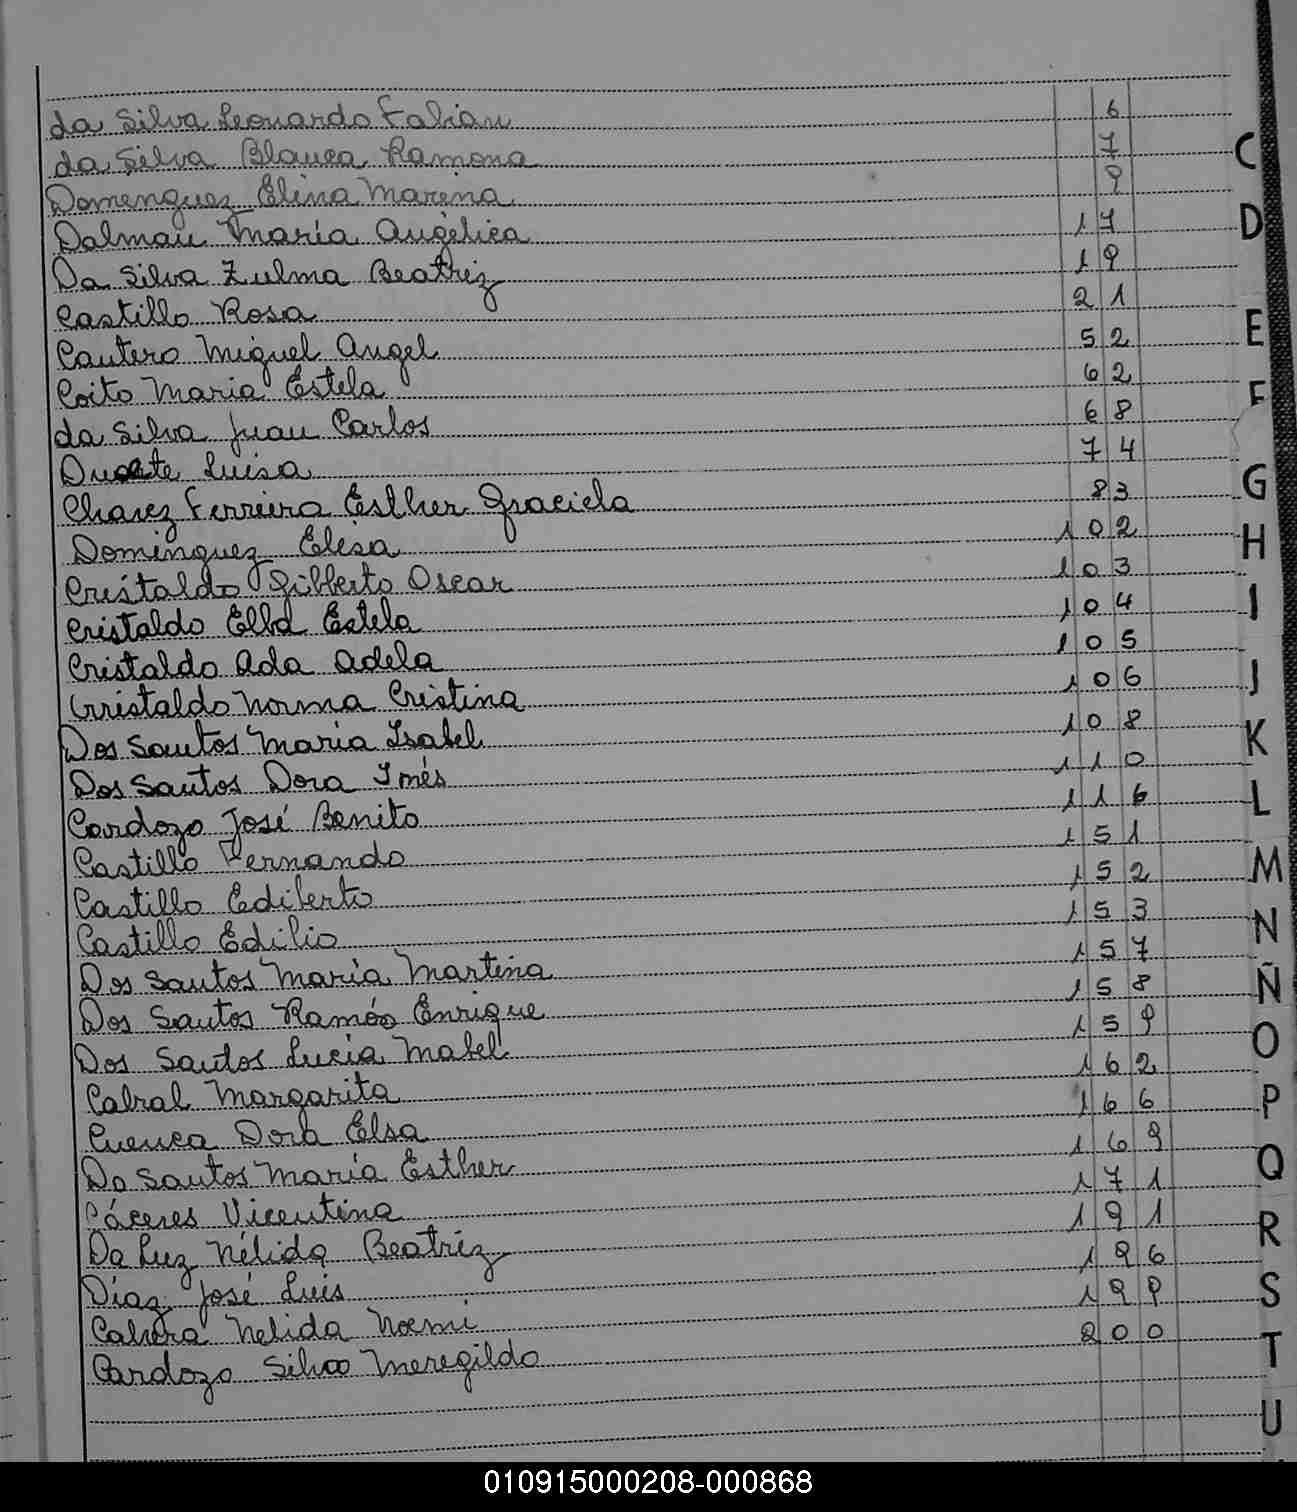 da Silva Leonardo Fabian 6
da Silva Blanca Ramona 7
Domenguez Elina Marina 9
Dalmau María Angélica 17
Da Silva Zulma Beatriz 19
Castillo Rosa 21
Cantero Miguel Angel 52
Coito Maria Estela 62
da Silva Juan Carlos 68
Duarte Luisa 74
Chavez Ferreira Esther Graciela 83
Dominguez Elisa 102
Cristaldo Gilberto Oscar 103
Cristaldo Elba Estela 104
Cristaldo Ada Adela 105
Cristaldo Norma Cristina 106
Dos Santos Maria Isabel 108
Dos Santos Dora Inés 110
Cardozo José Benito 116
Castillo Fernando 151
Castillo Ediberto 152
Castillo Edilio 153
Dos Santos María Martina 157
Dos Santos Ramón Enrique 158
Dos Santos Lucia Mabel 159
Cabral Margarita 162
Cuenca Dora Elsa 166
Do Santos María Esther 169
Cáceres Vicentina 171
Da Luz Nélida Beatriz 191
Díaz José Luis 196
Cabrera Nelida Noemi 199
Cardozo Silva Meregildo 200
C
D
E
F
G
H
I
J
K
L
M
N
Ñ
O
P
Q
R
S
T
U
010915000208-000868